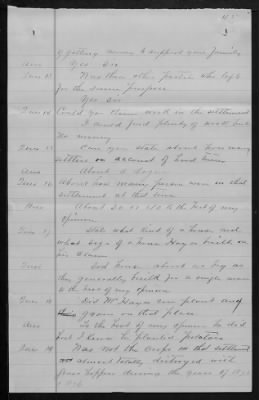 of getting money to support your family
Ans Yes Sir
Ques 13 Was there other parties who left
for the same purpose
Yes Sir
Ques 14 Could you obtain work in the settlement
I could find plenty of work but
no money
Ques 15 Can you state about how many
settlers on account of hard times
Ans About a dozen
Ques 16 About how many persons were in that
settlement at that time
Ans About to the best of my
opinion
Ques 17 State what kind of a house and
what size of a house Hayes built on
his claim
Ans Sod house about as big as
they generally built for a single man
to the best of my opinion
Ques 18 Did Mr Hayes ever plant any
on that place
Ans To the best of my opinion he did
but I know he planted potatoes
Ques 19 Was not the crops in that settlement
almost totally destroyed with
grass hoppers during the years of